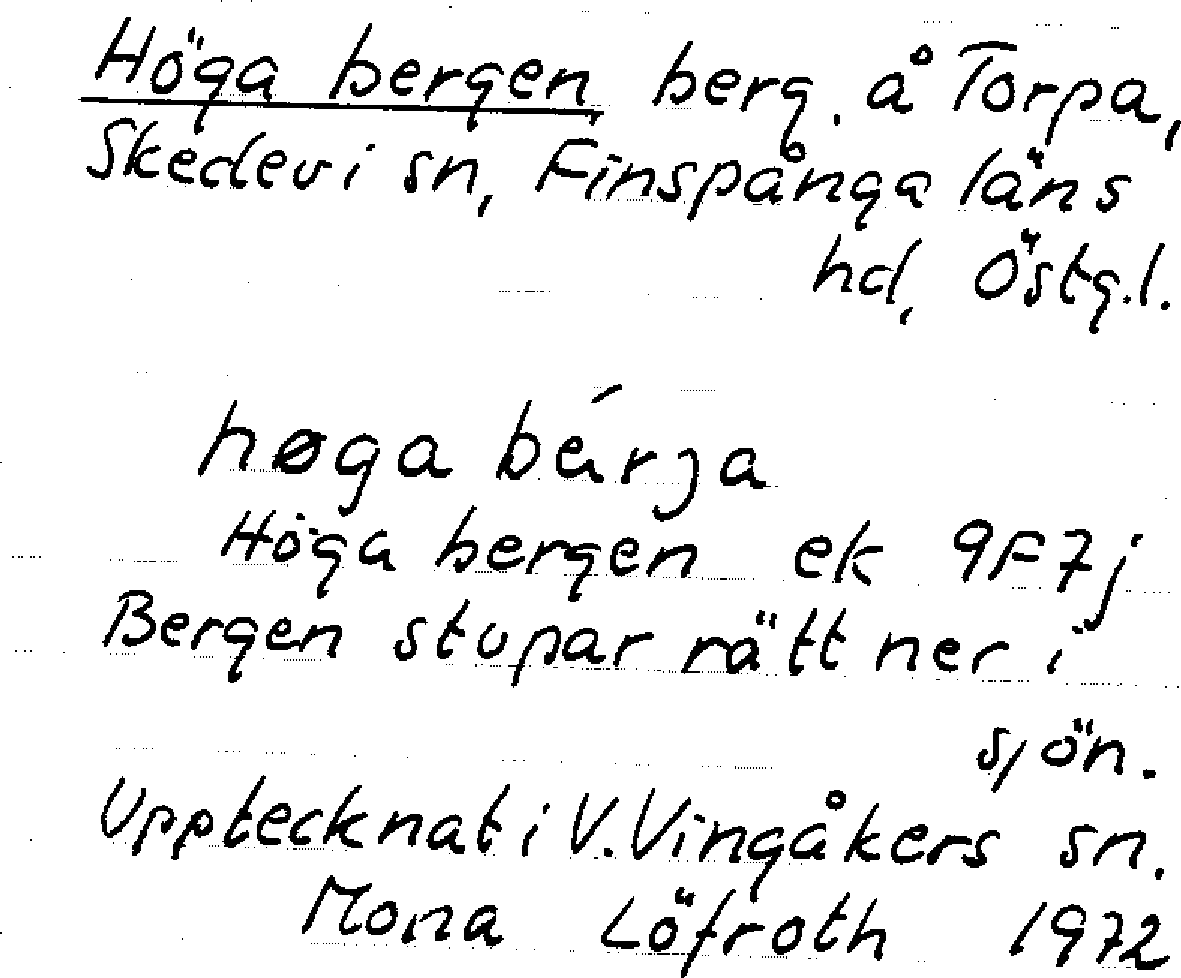 Höga bergen berg. å Torpa,
Skedevi sn, Finspånga läns
hd, Östg.l.
høga bérja
Höga bergen ek 9F7j
Bergen stupar rätt ner i
sjön.
Upptecknat i V. Vingåkers sn.
Mona Löfroth 1972